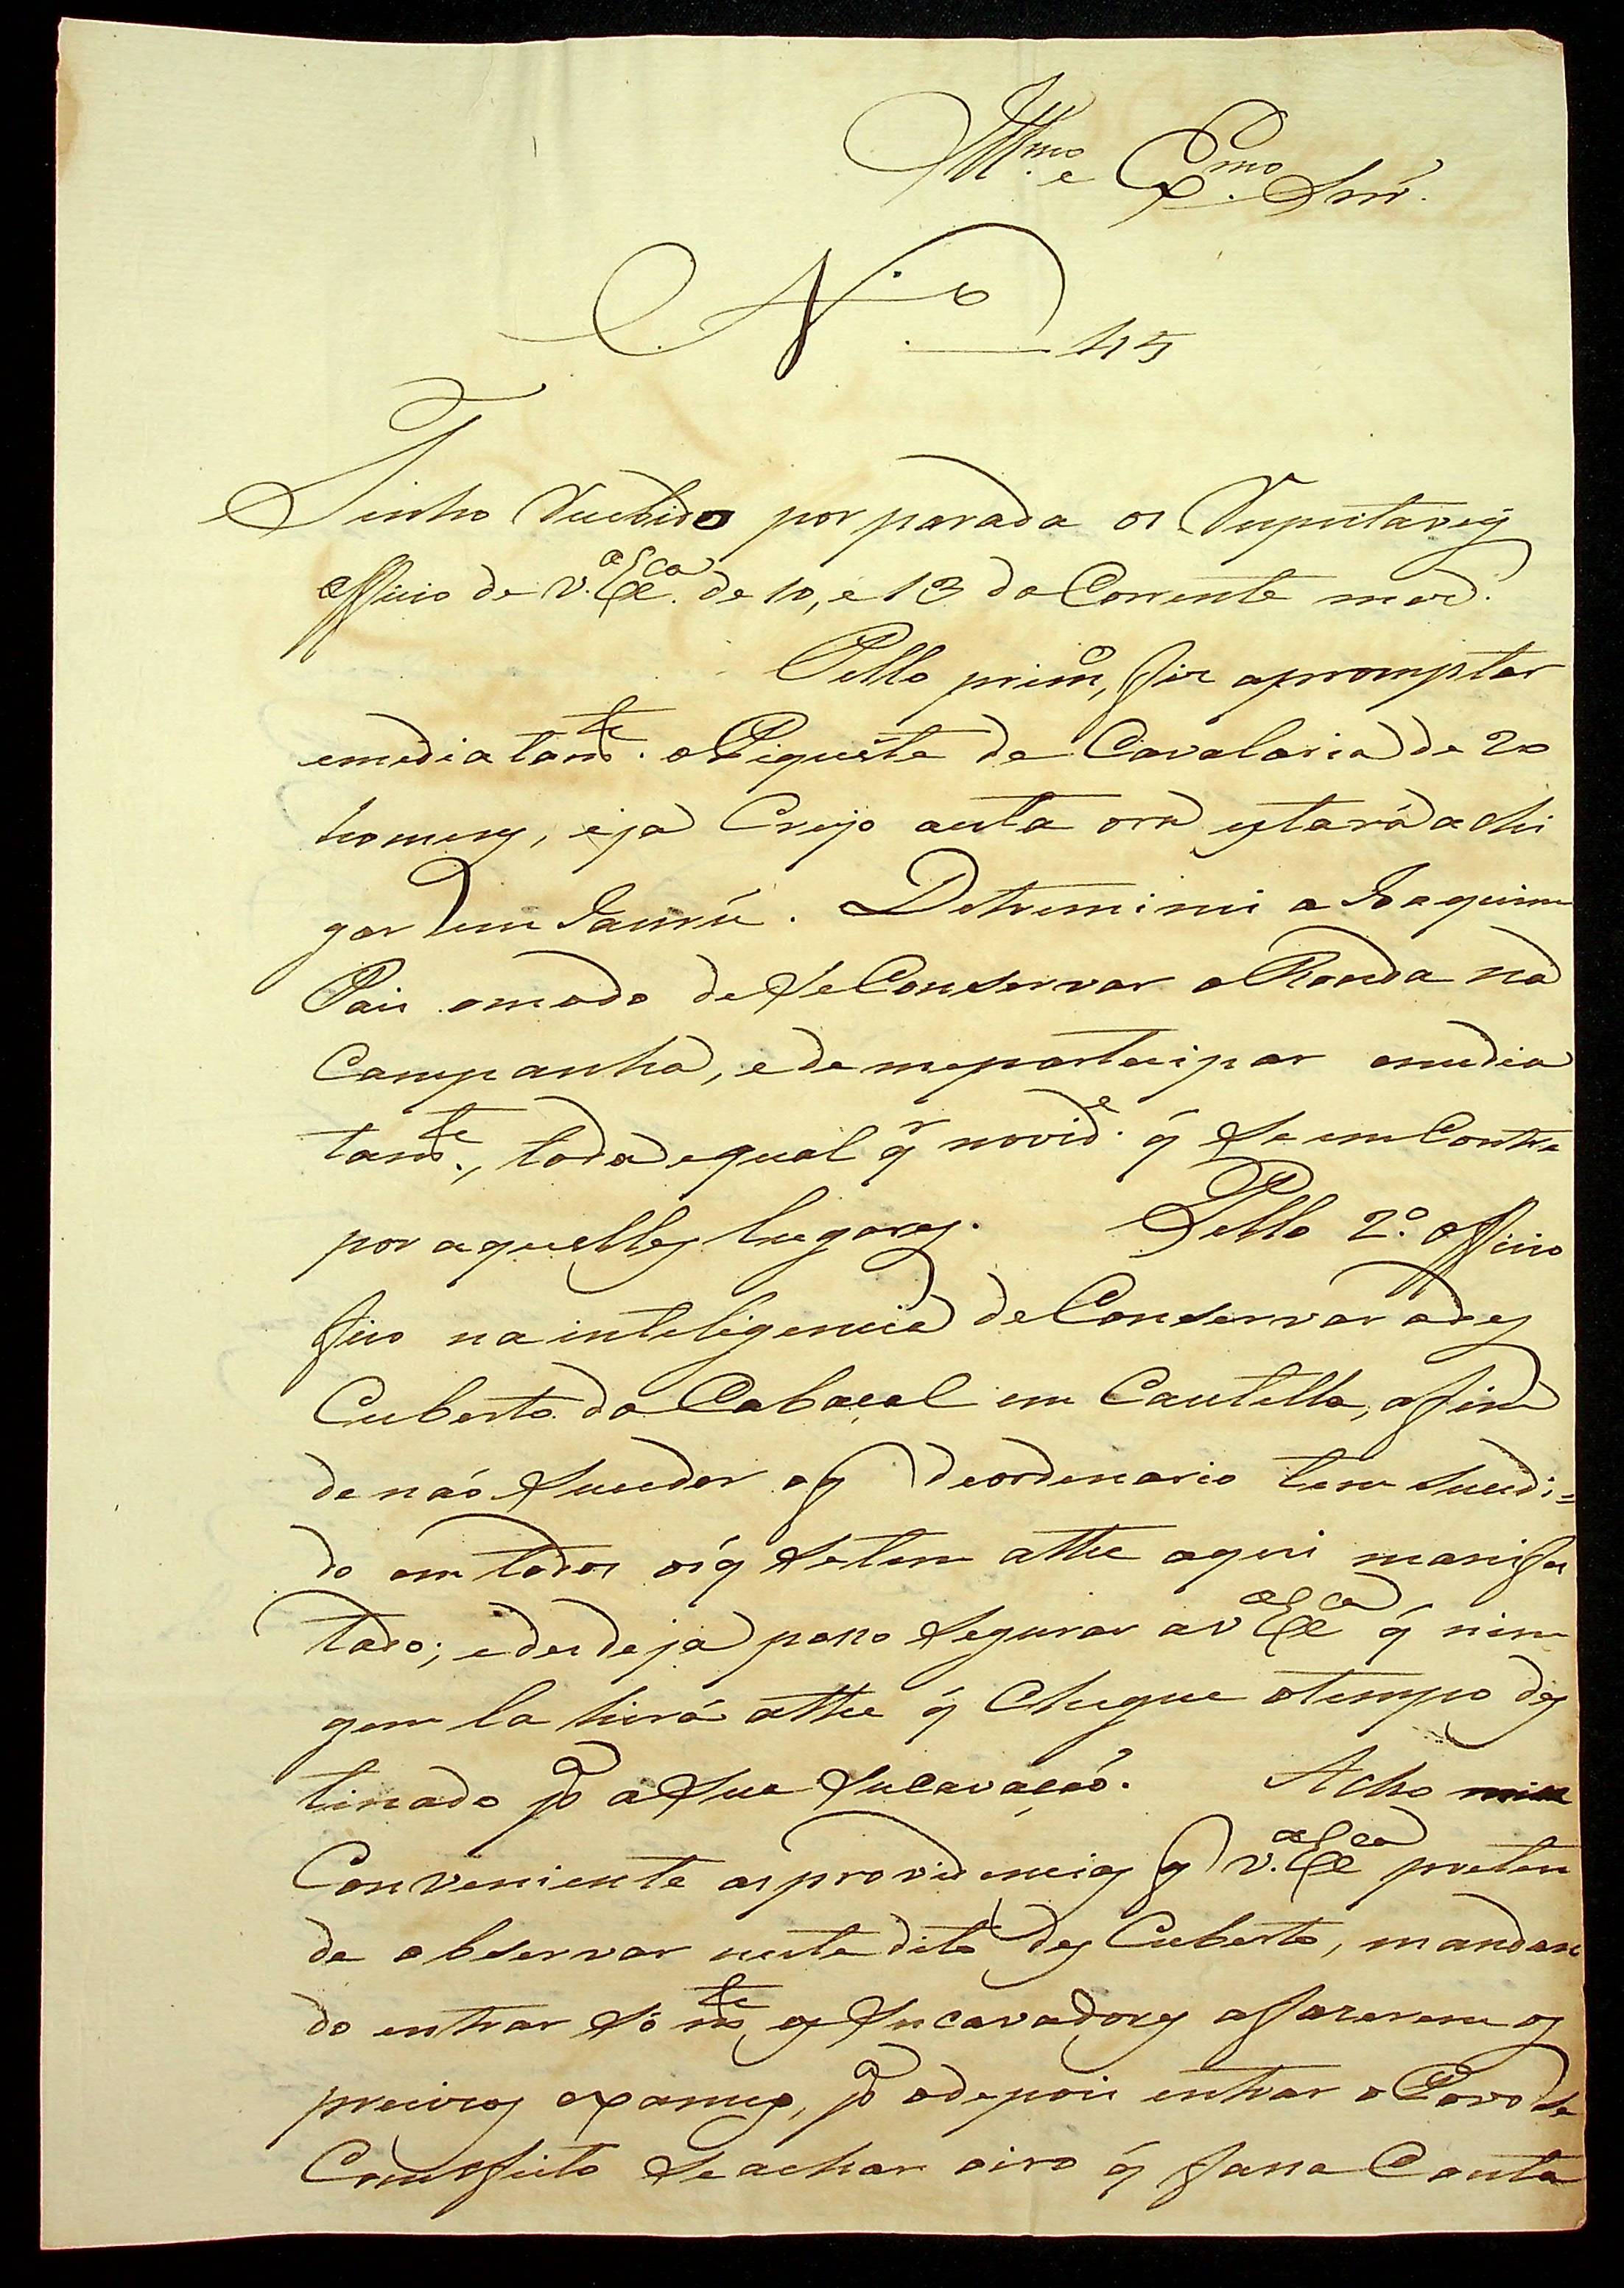 Illmo. e Exmo. Snr.
N.o 45
Tenho Recebido por parada os Respeitaveis
officio de V.a Exca. de 10, e 13 do Corrente mes.
Pello primro, fiz apromptar
emediatamte. o Piquete de Cavalaria de 20
homens, e ja Creyo aesta ora estará a che
gar em Jaurú. Detreminei a Joaquim
Pais omodo de se Conservar a Ronda na
Campanha, e de me partecipar emedia
tamte., toda e qual qr novide. q̃ se em Contre
por aquelles lugares. Pello 2.o officio
fico na inteligencia de Conservar o des
Cuberto do Cabaçal em Cautella, afim
de naó suceder oq deordenario tem sucedi=
do em todos os q̃ setem athe aqui manifes
tado; e desde ja posso segurar a V.a Exca q̃ nim
gem la hirá athe q̃ Chegue otempo des
tinado pa a sua sucavaçaó. Acho
Conveniente as providencias q V.a Exca preten
de observar neste dito des Cuberto, mandan
do entrar só mte os sucavadores afazerem os
precizos exames, pa adepois entrar o Povo se
Com effeito se achar oiro q̃ fassa Conta